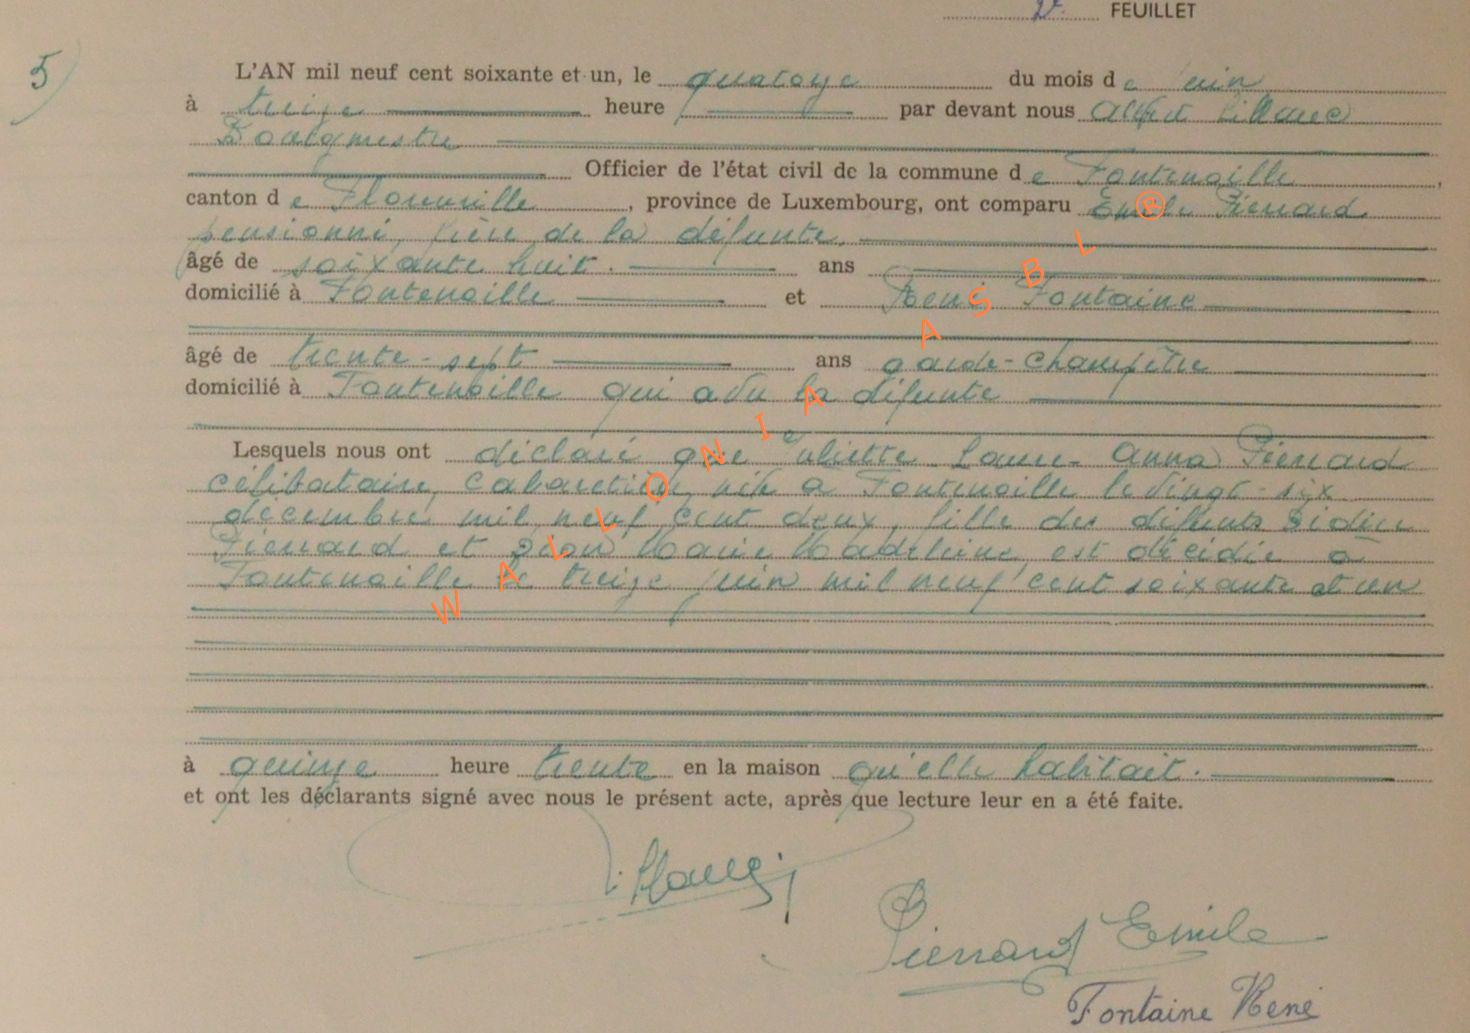 2e FEUILLET
5)
L'AN mil neuf cent soixante et un, le quatorze du mois de juin
à treize heure par devant nous Alfred
Bourgmestre
Officier de l'état civil de la commune de Fontenoille,
canton de Florenville, province de Luxembourg, ont comparu Emile Pierrard
pensionné, frère de la défunte.
âgé de soixante huit. ans
domicilié à Fontenoille et René Fontaine
âgé de trente-sept ans garde-champêtre
domicilié à Fontenoille qui a vu la défunte
Lesquels nous ont déclaré que Juliette Laure-Anna Pierrard
célibataire, cabaretière, née à Fontenoille le vingt-six
décembre mil neuf cent deux, fille des défunts Sidier
Pierrard et Marie Madeleine, est décédée à
Fontenoille le treize juin mil neuf cent soixante et un
à quinze heure trente en la maison qu'elle habitait.
et ont les déclarants signé avec nous le présent acte, après que lecture leur en a été faite.
Pierrard Emile
Fontaine René
WALLONIA ASBL ®